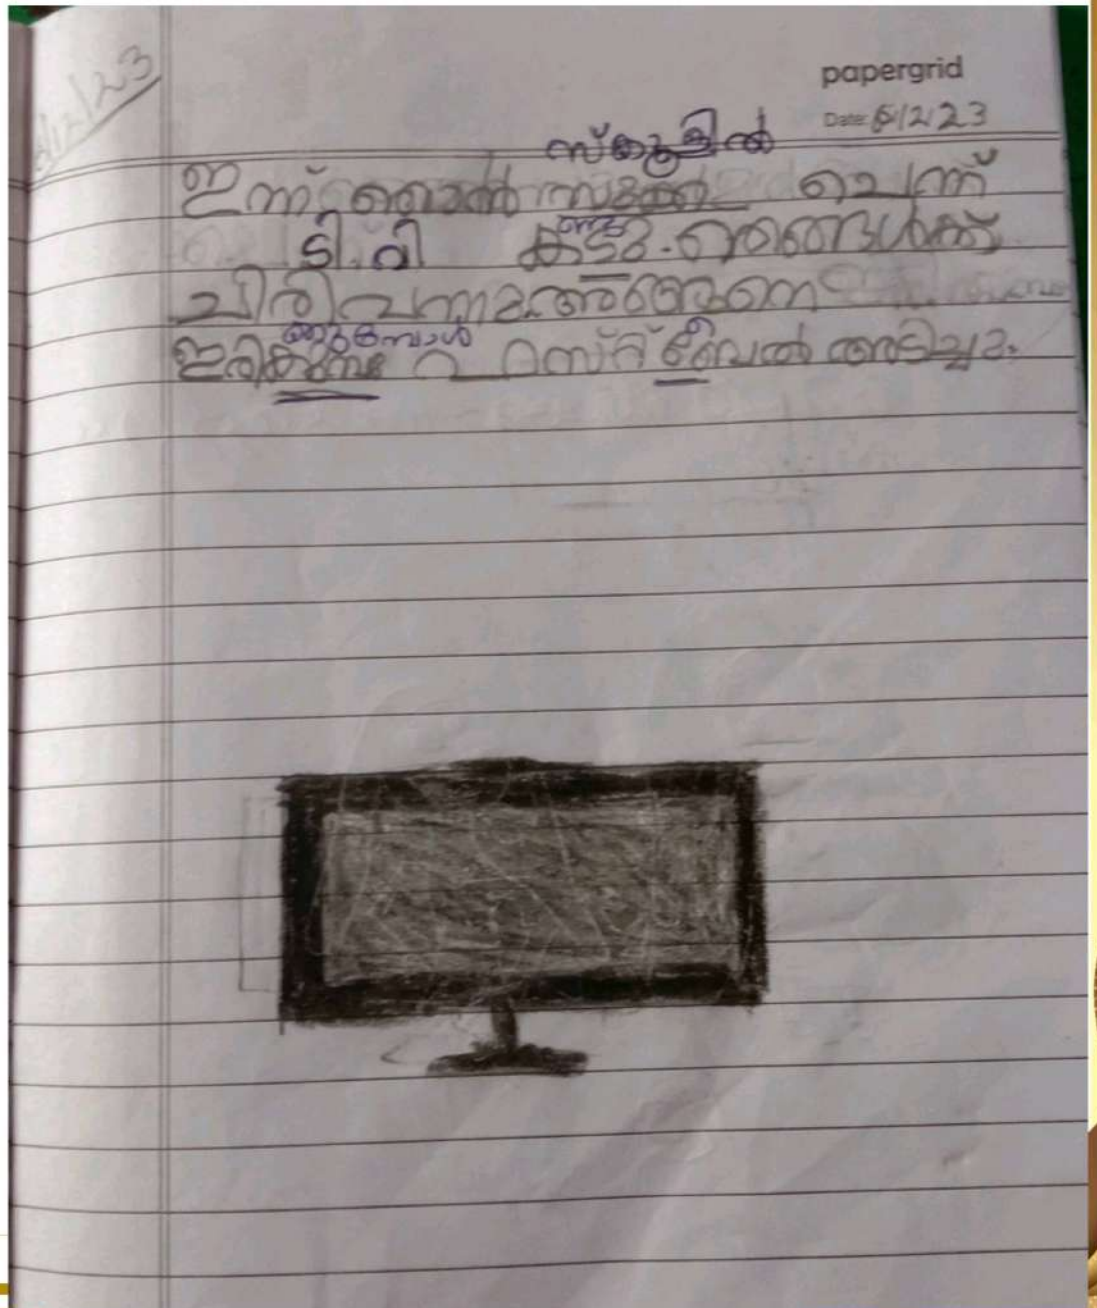 papergrid
Date: 6/2/23
/12/23
സ്കൂളിൽ
ഇന്ന് ഞാൻ ചെന്ന്
ടി.വി കണ്ടു. ഞങ്ങൾക്ക്
ചിരി വന്നു അങ്ങനെ
ഇരിക്കുമ്പോൾ റസ്റ്റ് ബെൽ അടിച്ചു.